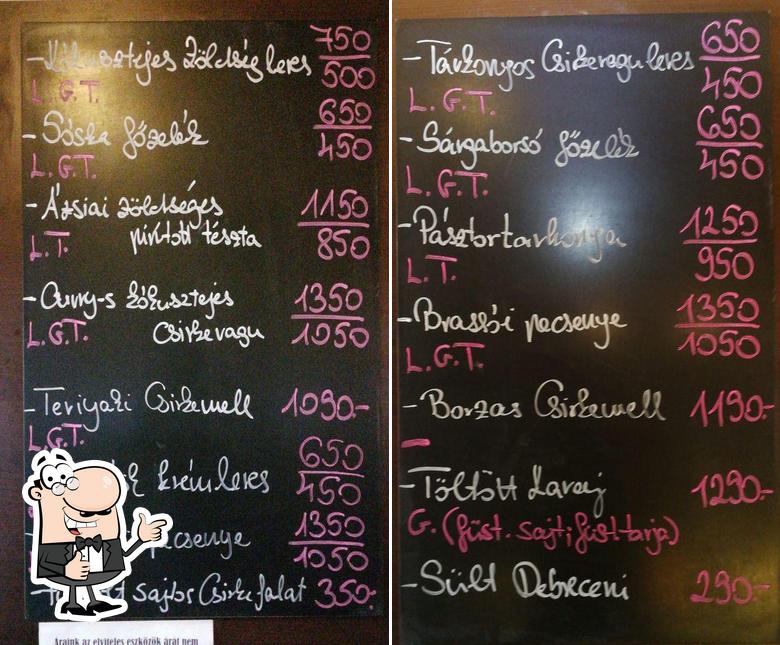 - Kókusztejes zöldség leves 750
500
L.G.T.
- Sóska főzelék 650
450
L.G.T.
- Ázsiai zöldséges 1150
L.T. pirított tészta 850
- Curry-s kókusztejes 1350
L.G.T. csirkeragu 1050
- Teriyaki Csirkemell 1090.-
L.G.T.
krémleves 650
450
pecsenye 1350
1050
sajtos Csirke falat 350.-
Áraink az elviteles eszközök árát nem
- Tárkonyos Csirkeragu leves 650
450
L.G.T.
- Sárgaborsó főzelék 650
450
L.G.T.
- Pásztortarhonya 1250
L.T. 950
- Brassói pecsenye 1350
1050
L.G.T.
- Borzas Csirkemell 1190.-
-
- Töltött Karaj 1290.-
G. (füst. sajt; füst. tarja)
- Sült Debreceni 290.-